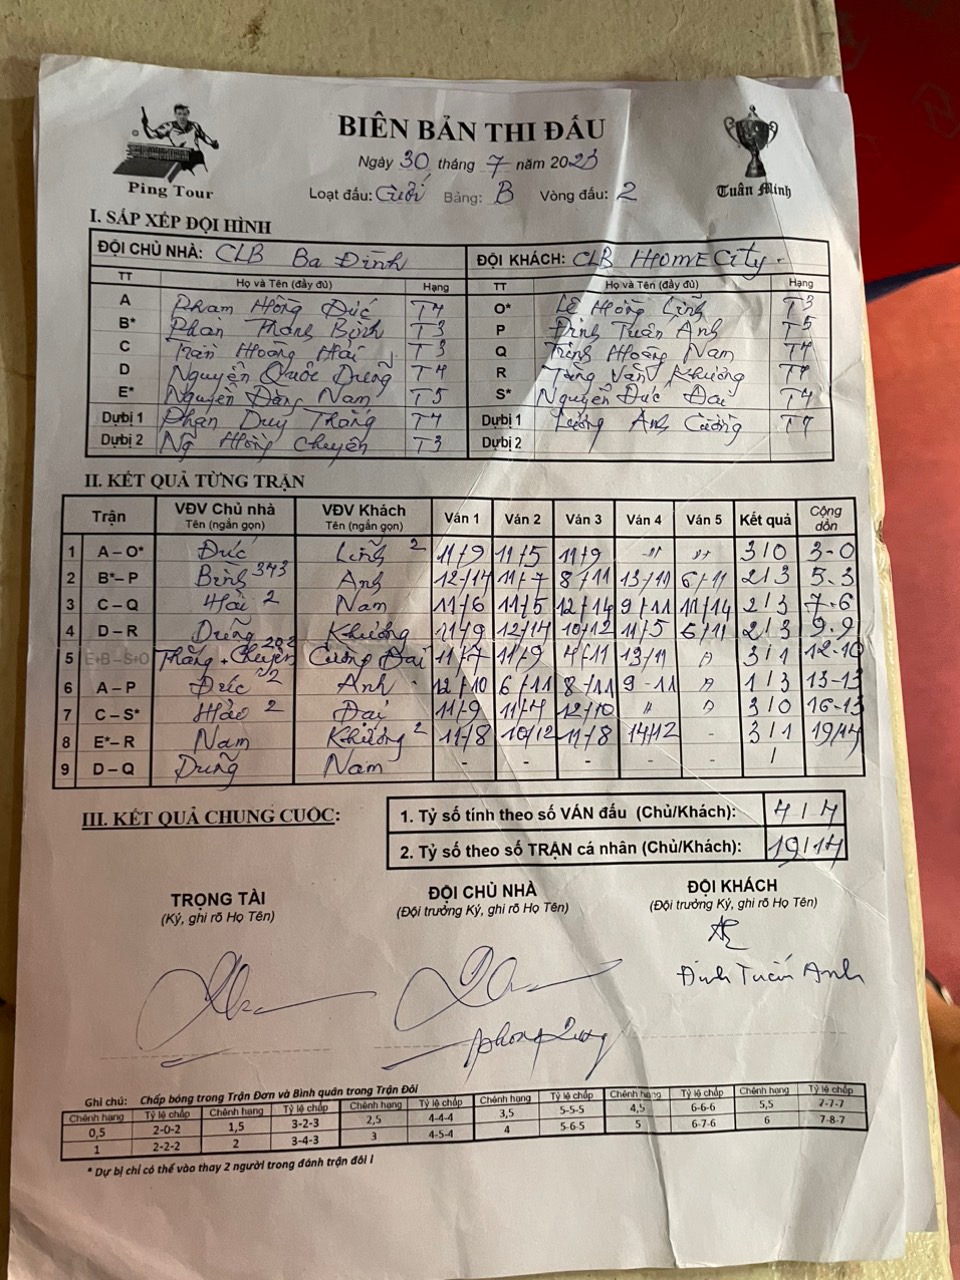 BIÊN BẢN THI ĐẤU
Ping Tour
Tuấn Minh
Ngày 30 tháng 7 năm 2023
Loạt đấu: Cuối Bảng: B Vòng đấu: 2
I. SẮP XẾP ĐỘI HÌNH
ĐỘI CHỦ NHÀ: CLB Ba Đình ĐỘI KHÁCH: CLB HOME City.
TT Họ và Tên (đầy đủ) Hạng TT Họ và Tên (đầy đủ) Hạng
A Phạm Hồng Đức T4 O* Lê Hồng Linh T3
B* Phan Thanh Bình T3 P Đinh Tuấn Anh T5
C Trần Hoàng Hải T3 Q Trịnh Hoàng Nam T4
D Nguyễn Quốc Dũng T4 R Văn Khương T4
E* Nguyễn Đăng Nam T5 S* Nguyễn Đức Đại T4
Dự bị 1 Phan Duy Thắng T4 Dự bị 1 Lương Anh Cường T4
Dự bị 2 Ng Hồng Chuyên T3 Dự bị 2
II. KẾT QUẢ TỪNG TRẬN
Trận VĐV Chủ nhà Tên (ngắn gọn) VĐV Khách Tên (ngắn gọn) Ván 1 Ván 2 Ván 3 Ván 4 Ván 5 Kết quả Cộng dồn
1 A – O* Đức Linh 2 11/9 11/5 11/9 " " 3/0 3-0
2 B* – P Bình 343 Anh 12/14 11/7 8/11 13/11 6/11 2/3 5-3
3 C – Q Hải 2 Nam 11/6 11/5 12/14 9/11 11/14 2/3 7-6
4 D – R Dũng Khương 11/9 12/14 10/12 11/5 6/11 2/3 9-9
5 E+B – S+O Thắng + Chuyên 202 Cường Đại 11/7 11/9 4/11 13/11 3/1 12-10
6 A – P Đức Anh 12/10 6/11 8/11 9-11 1/3 13-13
7 C – S* Hảo 2 Đại 11/9 11/4 12/10 " 3/0 16-13
8 E* – R Nam Khương 2 11/8 10/12 11/8 14/12 - 3/1 19/14
9 D – Q Dũng Nam - - - - - /
III. KẾT QUẢ CHUNG CUỘC:
1. Tỷ số tính theo số VÁN đấu (Chủ/Khách): 4/4
2. Tỷ số theo số TRẬN cá nhân (Chủ/Khách): 19/14
TRỌNG TÀI ĐỘI CHỦ NHÀ ĐỘI KHÁCH
(Ký, ghi rõ Họ Tên) (Đội trưởng Ký, ghi rõ Họ Tên) (Đội trưởng Ký, ghi rõ Họ Tên)
Đinh Tuấn Anh
Ghi chú: Chấp bóng trong Trận Đơn và Bình quân trong Trận Đôi
Chênh hạng Tỷ lệ chấp Chênh hạng Tỷ lệ chấp Chênh hạng Tỷ lệ chấp Chênh hạng Tỷ lệ chấp Chênh hạng Tỷ lệ chấp Chênh hạng Tỷ lệ chấp
0,5 2-0-2 1,5 3-2-3 2,5 4-4-4 3,5 5-5-5 4,5 6-6-6 5,5 7-7-7
1 2-2-2 2 3-4-3 3 4-5-4 4 5-6-5 5 6-7-6 6 7-8-7
* Dự bị chỉ có thể vào thay 2 người trong đánh trận đôi !